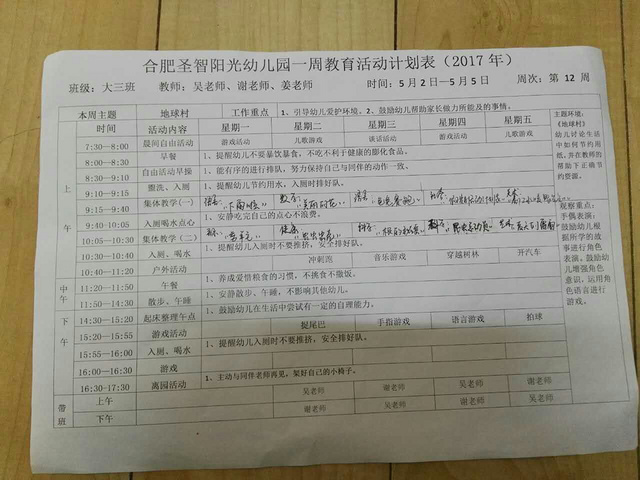 合肥圣智阳光幼儿园一周教育活动计划表（2017 年）
班级：大三班 教师：吴老师、谢老师、姜老师 时间：5 月 2 日—5 月 5 日 周次：第 12 周
本周主题 地球村 工作重点 1、引导幼儿爱护环境。2、鼓励幼儿帮助家长做力所能及的事情。
时间 活动内容 星期一 星期二 星期三 星期四 星期五
上午
7:30—8:00 晨间自由活动 游戏活动 儿歌游戏 谈话活动 游戏活动 儿歌游戏
8:00—8:30 早餐 1、提醒幼儿不要暴饮暴食，不吃不利于健康的膨化食品。
8:10—9:10 自由活动早操 1、能有序的进行排队，努力保持自己与同伴的动作一致。
9:10—9:15 盥洗、入厕 1、提醒幼儿节约用水，入厕时排好队。
9:15—9:40 集体教学（一）
9:40—10:05 入厕喝水点心 1、安静吃完自己的点心不浪费。
10:05—10:30 集体教学（二）
10:30—10:40 入厕、喝水 1、提醒幼儿入厕时不要推挤，安全排好队。
10:40—11:20 户外活动 冲刺跑 音乐游戏 穿越树林 开汽车
中午
11:20—11:50 午餐 1、养成爱惜粮食的习惯，不挑食不撒饭。
11:50—14:30 散步、午睡 1、安静散步、午睡，不影响其他幼儿。
下午
14:30—15:20 起床整理午点 1、鼓励幼儿在生活中尝试有一定的自理能力。
15:20—15:55 游戏活动 捉尾巴 手指游戏 语言游戏 拍球
15:55—16:00 入厕、喝水 1、提醒幼儿入厕时不要推挤，安全排好队。
16:00—16:30 游戏
16:30-17:30 离园活动 1、主动与同伴老师再见，架好自己的小椅子。
带班
上午 吴老师 谢老师 吴老师 谢老师
下午 谢老师 吴老师 谢老师 吴老师
主题环境：
《地球村》
幼儿讨论生活
中如何节约用
纸，并在教师的
帮助下正确节
约资源。
观察重点：
手偶表演：
鼓励幼儿根
据所学的故
事进行角色
表演。鼓励幼
儿增强角色
意识，运用角
色语言进行
游戏。